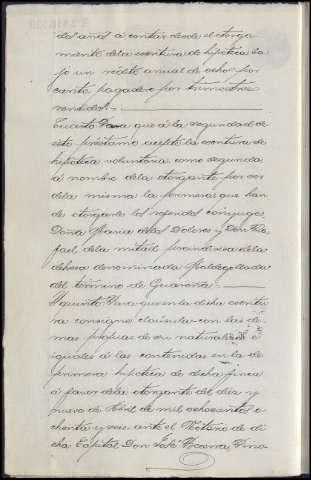 dos años á contar desde el otorga-
miento dela escritura de hipoteca ba-
jo un rédito anual de ocho por
ciento pagadero por trimestres
vencidos.
Cuarto Para que á la seguridad de
este préstamo acepte la escritura de
hipoteca voluntaria como segunda
á nombre dela otorgante por ser
dela misma la primera que han
de otorgarle los referidos conyuges
Doña Maria delos Dolores y Don Ra-
fael, dela mitad proindivisa dela
dehesa denominada
del término de Guareña.
Y quinto Para que en la dicha escritu-
ra consigne clausula con las de-
mas propias de su naturaleza é
iguales á las contenidas en la de
primera hipoteca de dicha finca
á favor dela otorgante del diez y
nueve de Abril de mil ochocientos o-
chenta y seis ante el Notario de di-
cha Capital Don José